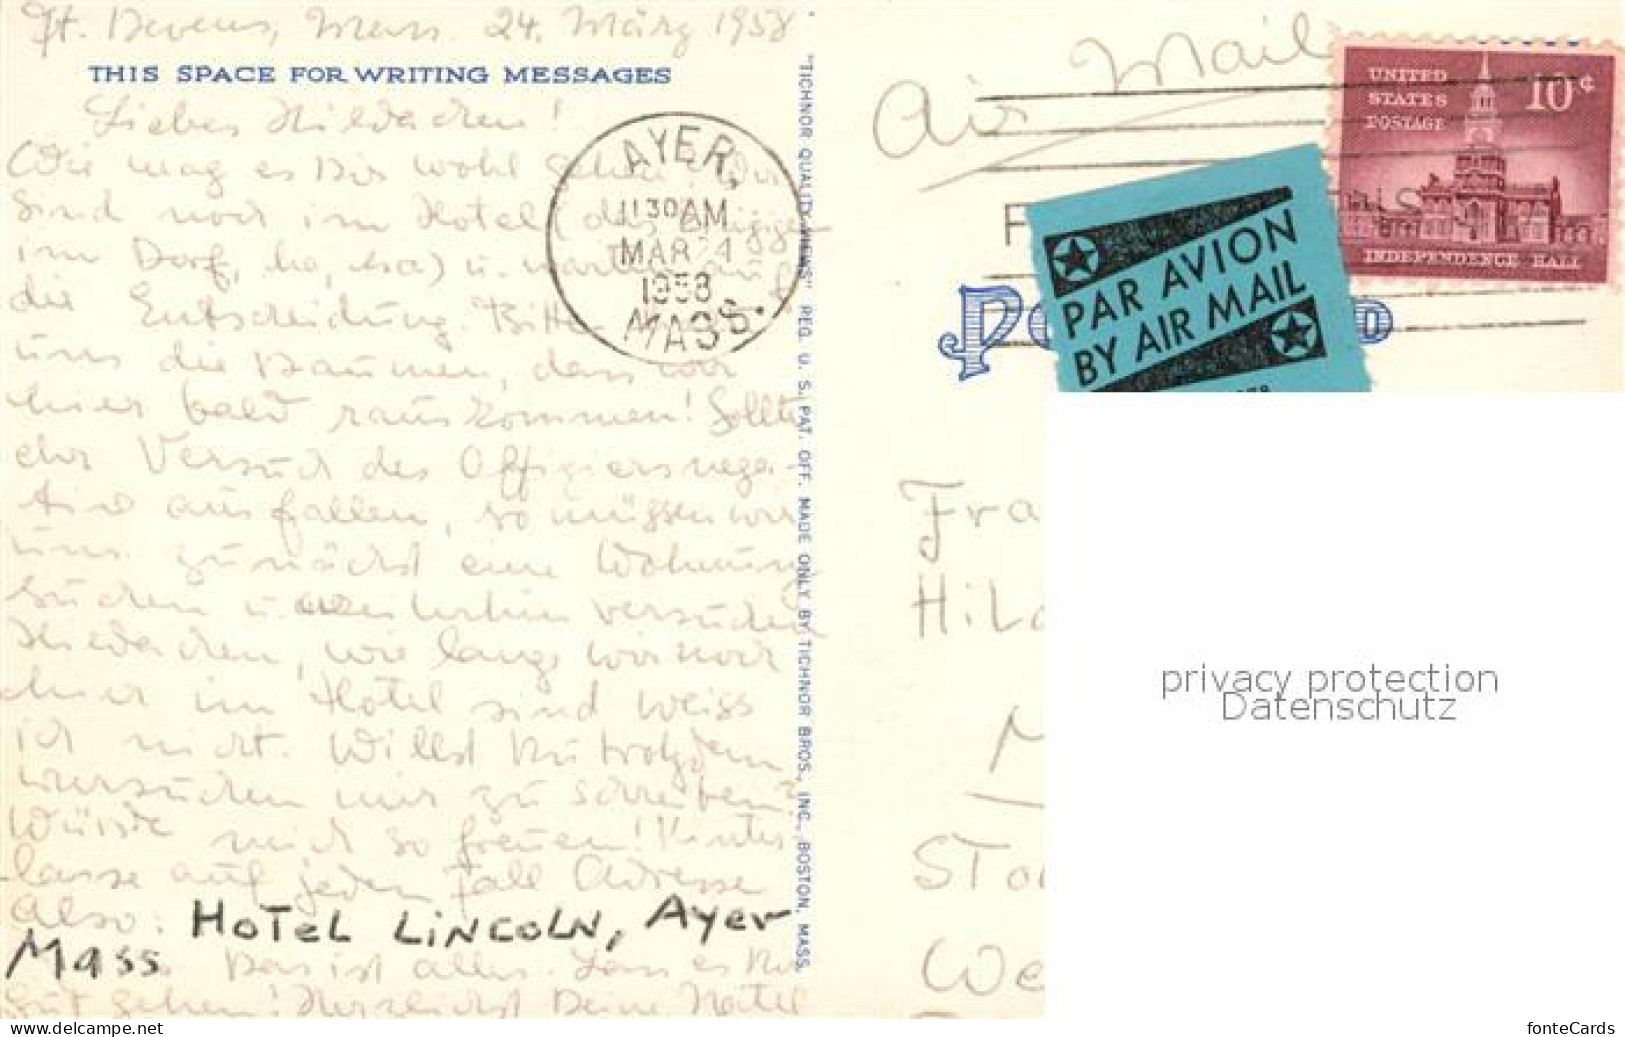 Ft. Devens, Mass. 24. März 1958
THIS SPACE FOR WRITING MESSAGES
Liebes Hildachen!
Wie mag es Dir wohl gehen? Wir
sind noch im Hotel (das Einzige
im Dorf, ha, ha) u. warten auf
die Entscheidung. Bitte
uns die Daumen, dass wir
hier bald rauskommen! Sollte
der Versuch des Offiziers nega-
tiv ausfallen, so müssen wir
uns zunächst eine Wohnung
suchen u. weiterhin versuchen
Hildachen, wie lange wir noch
hier im Hotel sind weiss
ich nicht. Willst Du trotzdem
versuchen mir zu schreiben?
Würde mich so freuen! Hinter-
lasse auf jeden Fall Adresse
Also: HOTEL LINCOLN, Ayer
Mass. Das ist alles. Lass es Dir
gut gehen! Herzlichst Deine
AYER,
11 30 AM
MAR 24
1958
MASS.
"TICHNOR QUALITY VIEWS" REG. U. S. PAT. OFF. MADE ONLY BY TICHNOR BROS., INC., BOSTON, MASS.
Air Mail
UNITED
STATES
POSTAGE
10¢
INDEPENDENCE HALL
PAR AVION
BY AIR MAIL
Fra
Hild
M
STo
We
privacy protection
Datenschutz
www.delcampe.net
fonteCards